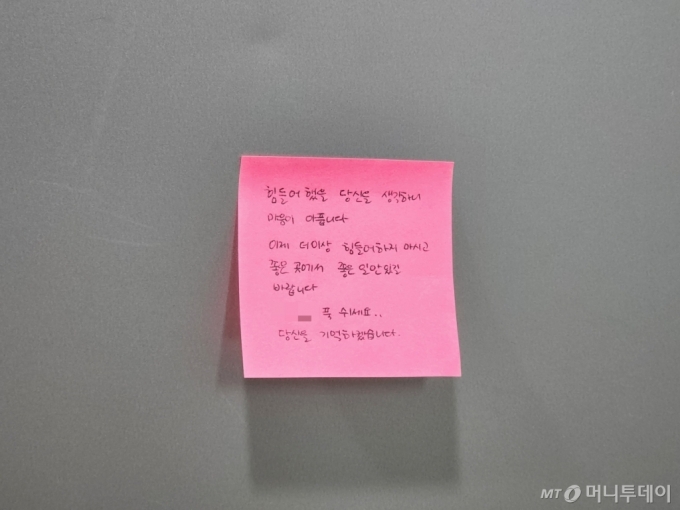 힘들어 했을 당신을 생각하니
마음이 아픕니다
이제 더이상 힘들어하지 마시고
좋은 곳에서 좋은 일만 있길
바랍니다
푹 쉬세요..
당신을 기억하겠습니다.
MT 머니투데이